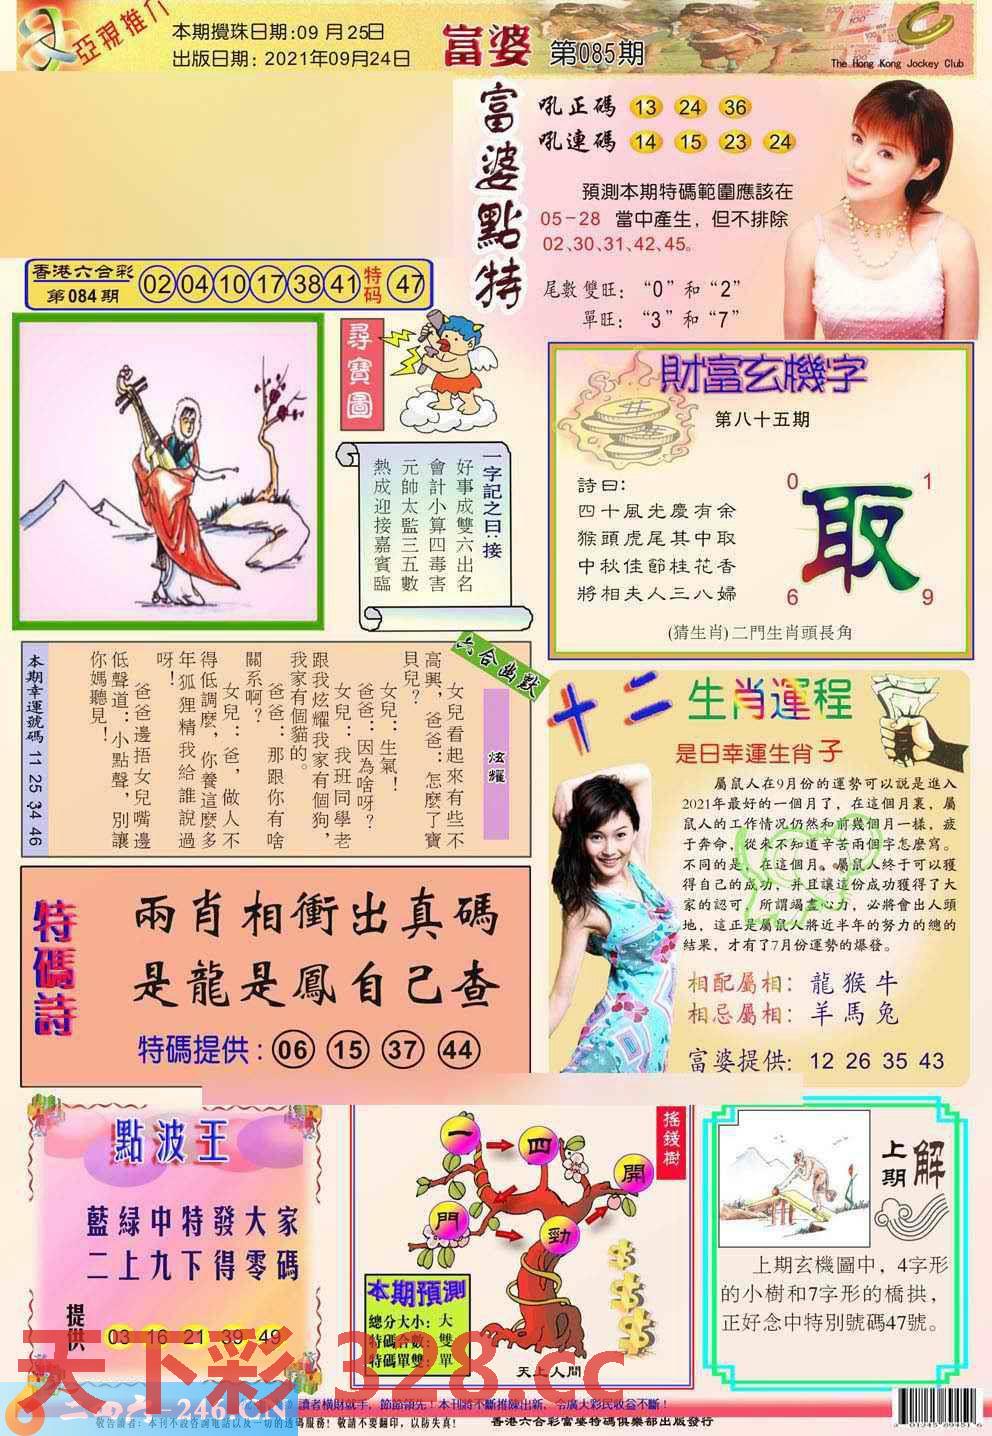 亞視推介
本期攪珠日期:09 月 25日
出版日期: 2021年09月24日
富婆 第085期
The Hong Kong Jockey Club
富婆點特
吼正碼 13 24 36
吼連碼 14 15 23 24
預測本期特碼範圍應該在
05-28 當中產生, 但不排除
02、30、31、42、45。
尾數雙旺: “0” 和 “2”
單旺: “3” 和 “7”
香港六合彩
第 084 期
02 04 10 17 38 41 特码 47
尋寶圖
一字記之曰:接
好事成雙六出名
會計小算四毒害
元帥太監三五數
熱成迎接嘉賓臨
財富玄機字
第八十五期
詩曰:
四十風光慶有余
猴頭虎尾其中取
中秋佳節桂花香
將相夫人三八婦
0 1
取
6 9
(猜生肖) 二門生肖頭長角
六合幽默
炫耀
女兒看起來有些不
高興，爸爸：怎麼了寶
貝兒？
女兒：生氣！
爸爸：因為啥呀？
女兒：我班同學老
跟我炫耀我家有個狗，
我家有個貓的。
爸爸：那跟你有啥
關系啊？
女兒：爸，做人不
得低調麼，你養這麼多
年狐狸精我給誰說過
呀！
爸爸邊捂女兒嘴邊
低聲道：小點聲，別讓
你媽聽見！
本期幸運號碼 11 25 34 46
十二生肖運程
是日幸運生肖 子
屬鼠人在9月份的運勢可以說是進入
2021年最好的一個月了，在這個月裏，屬
鼠人的工作情況仍然和前幾個月一樣，疲
于奔命，從來不知道辛苦兩個字怎麼寫。
不同的是，在這個月。屬鼠人終于可以獲
得自己的成功，并且讓這份成功獲得了大
家的認可，所謂竭盡心力，必將會出人頭
地，這正是屬鼠人將近半年的努力的總的
結果，才有了7月份運勢的爆發。
相配屬相: 龍 猴 牛
相忌屬相: 羊 馬 兔
富婆提供: 12 26 35 43
特碼詩
兩肖相衝出真碼
是龍是鳳自己查
特碼提供 : 06 15 37 44
點波王
藍綠中特發大家
二上九下得零碼
提供 03 16 21 39 49
搖錢樹
一 四 開 門 勁
本期預測
總分大小: 大
特碼合數: 雙
特碼單雙: 單
天上人間
上期解
上期玄機圖中，4字形
的小樹和7字形的橋拱，
正好念中特別號碼47號。
天下彩 328.cc
246.CN
讀者橫財就手，節節領先！本刊將不斷推陳出新、令廣大彩民收益不斷！
敬告讀者：本刊不設咨詢電話以及一切的透碼服務！敬請不要翻印，以防失真！
香港六合彩富婆特碼俱樂部出版發行